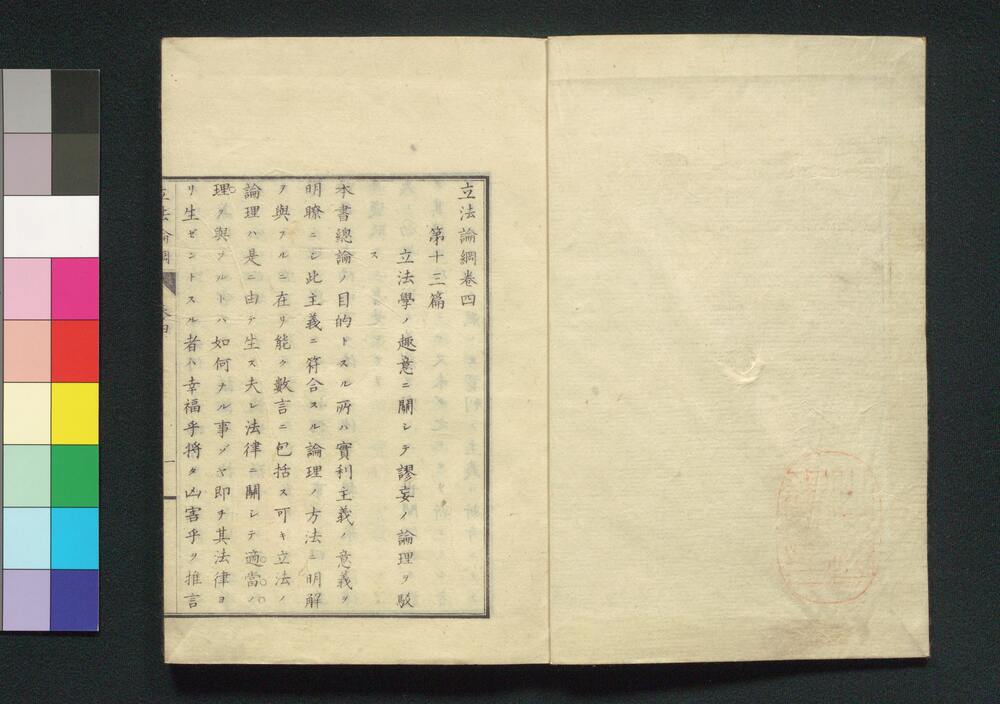 立法論綱卷四
第十三篇
立法學ノ趣意ニ關シテ謬妄ノ論理ヲ駁
ス
本書總論ノ目的トスル所ハ實利主義ノ意義ヲ
明瞭ニシ此主義ニ符合スル論理ノ方法ニ明解
ヲ與フルニ在リ能ク數言ニ包括ス可キ立法ノ
論理ハ是ニ由テ生ス夫レ法律ニ關シテ適當ノ
理ヲ與フルトハ如何ナル事ゾヤ即チ其法律ヨ
リ生ゼントスル者ハ幸福乎將タ凶害乎ヲ推言
立法論綱
一